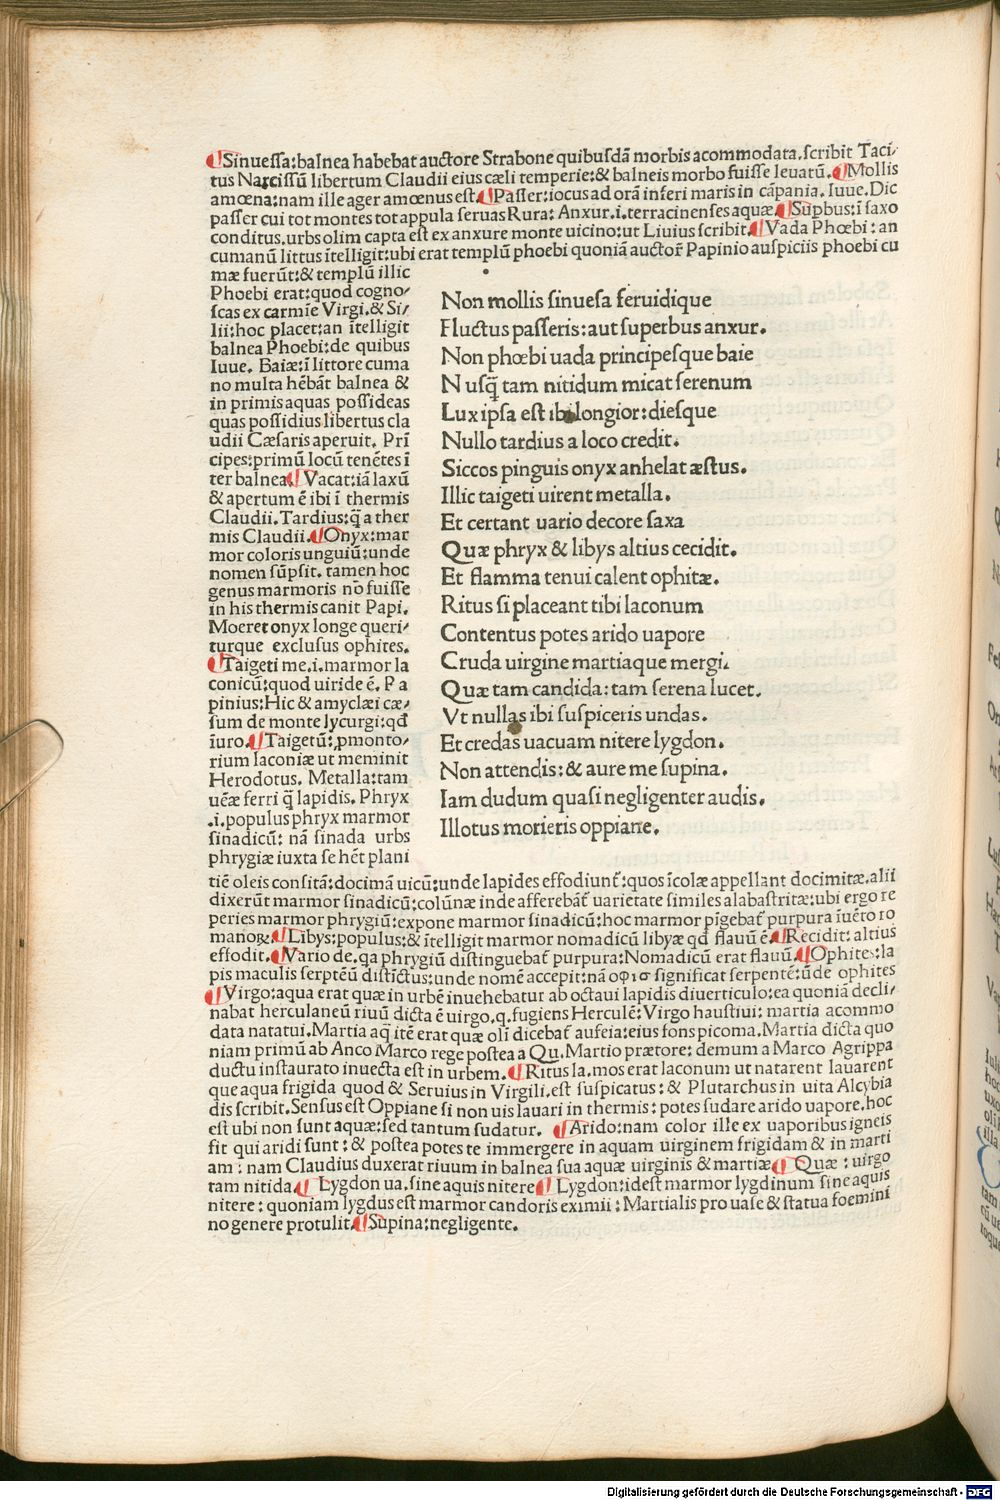 ¶Sinuessa:balnea habebat auctore Strabone quibusdā morbis acommodata.scribit Taci/
tus Narcissū libertum Claudii eius cæli temperie:& balneis morbo fuisse leuatū.¶Mollis
amœna:nam ille ager amœnus est.¶Passer:iocus ad orā inferi maris in cāpania.Iuue.Dic
passer cui tot montes tot appula seruas Rura: Anxur.i.terracinenses aquæ.¶Supbus:ī saxo
conditus.urbs olim capta est ex anxure monte uicino:ut Liuius scribit.¶Vada Phœbi:an
cumanū littus ītelligit:ubi erat templū phoebi quoniā auctor̄ Papinio auspiciis phoebi cu
mæ fuerūt:& templū illic
Phoebi erat:quod cogno/
scas ex carmīe Virgi.& Si/
lii:hoc placet:an ītelligit
balnea Phoebi:de quibus
Iuue. Baiæ:ī littore cuma
no multa hēbāt balnea &
in primis aquas possideas
quas possidius libertus cla
udii Cæsaris aperuit. Prī
cipes:primū locū tenētes ī
ter balnea¶Vacat:iā laxū
& apertum ē ibi ī thermis
Claudii.Tardius:q̄ a ther
mis Claudii.¶Onyx:mar
mor coloris unguiū:unde
nomen sūpsit. tamen hoc
genus marmoris nō fuisse
in his thermis canit Papi.
Moeret onyx longe queri/
turque exclusus ophites.
¶Taigeti me.i.marmor la
conicū:quod uiride ē. Pa
pinius:Hic & amyclæi cæ/
sum de monte lycurgi:qđ
īuro.¶Taigetū:,pmonto/
rium laconiæ ut meminit
Herodotus. Metalla:tam
uēæ ferri q̄ lapidis. Phryx
.i.populus phryx marmor
sinadicū: nā sinada urbs
phrygiæ iuxta se hēt plani
Non mollis sinuesa feruidique
Fluctus passeris:aut superbus anxur.
Non phœbi uada principesque baie
Nusq̄ tam nitidum micat serenum
Lux ipsa est ibi longior:diesque
Nullo tardius a loco credit.
Siccos pinguis onyx anhelat æstus.
Illic taigeti uirent metalla.
Et certant uario decore saxa
Quæ phryx & libys altius cecidit.
Et flamma tenui calent ophitæ.
Ritus si placeant tibi laconum
Contentus potes arido uapore
Cruda uirgine martiaque mergi.
Quæ tam candida:tam serena lucet.
Vt nullas ibi suspiceris undas.
Et credas uacuam nitere lygdon.
Non attendis:& aure me supina.
Iam dudum quasi negligenter audis.
Illotus morieris oppiane.
tiē oleis consitā:docimā uicū:unde lapides effodiunt̄:quos īcolæ appellant docimitæ.alii
dixerūt marmor sinadicū:colūnæ inde afferebāt̄ uarietate similes alabastritæ:ubi ergo re
peries marmor phrygiū:expone marmor sinadicū:hoc marmor pīgebat̄ purpura iuēto ro
manoꝝ.¶Libys:populus:& ītelligit marmor nomadicū libyæ qđ flauū ē.¶Recidit:altius
effodit.¶Vario de.qa phrygiū distinguebat̄ purpura:Nomadicū erat flauū.¶Ophites:la
pis maculis serpētū distīctus:unde nomē accepit:nā οφισ significat serpentē:ūde ophites
¶Virgo:aqua erat quæ in urbē inuehebatur ab octaui lapidis diuerticulo:ea quoniā decli/
nabat herculaneū riuū dicta ē uirgo.q.fugiens Herculē:Virgo haustiui:martia acommo
data natatui.Martia aq̄ itē erat quæ olī dicebat̄ aufeia:eius fons picoma.Martia dicta quo
niam primū ab Anco Marco rege postea a Qu.Martio prætore:demum a Marco Agrippa
ductu instaurato inuecta est in urbem.¶Ritus la.mos erat laconum ut natarent lauarent
que aqua frigida quod & Seruius in Virgili.est suspicatus:& Plutarchus in uita Alcybia
dis scribit.Sensus est Oppiane si non uis lauari in thermis:potes sudare arido uapore.hoc
est ubi non sunt aquæ:sed tantum sudatur. ¶Arido:nam color ille ex uaporibus igneis
fit qui aridi sunt:& postea potes te immergere in aquam uirginem frigidam & in marti
am:nam Claudius duxerat riuum in balnea sua aquæ uirginis & martiæ¶Quæ:uirgo
tam nitida.¶Lygdon ua.sine aquis nitere¶Lygdon:idest marmor lygdinum sine aquis
nitere:quoniam lygdus est marmor candoris eximii:Martialis pro uase & statua foemini
no genere protulit.¶Supina:negligente.
Digitalisierung gefördert durch die Deutsche Forschungsgemeinschaft - DFG